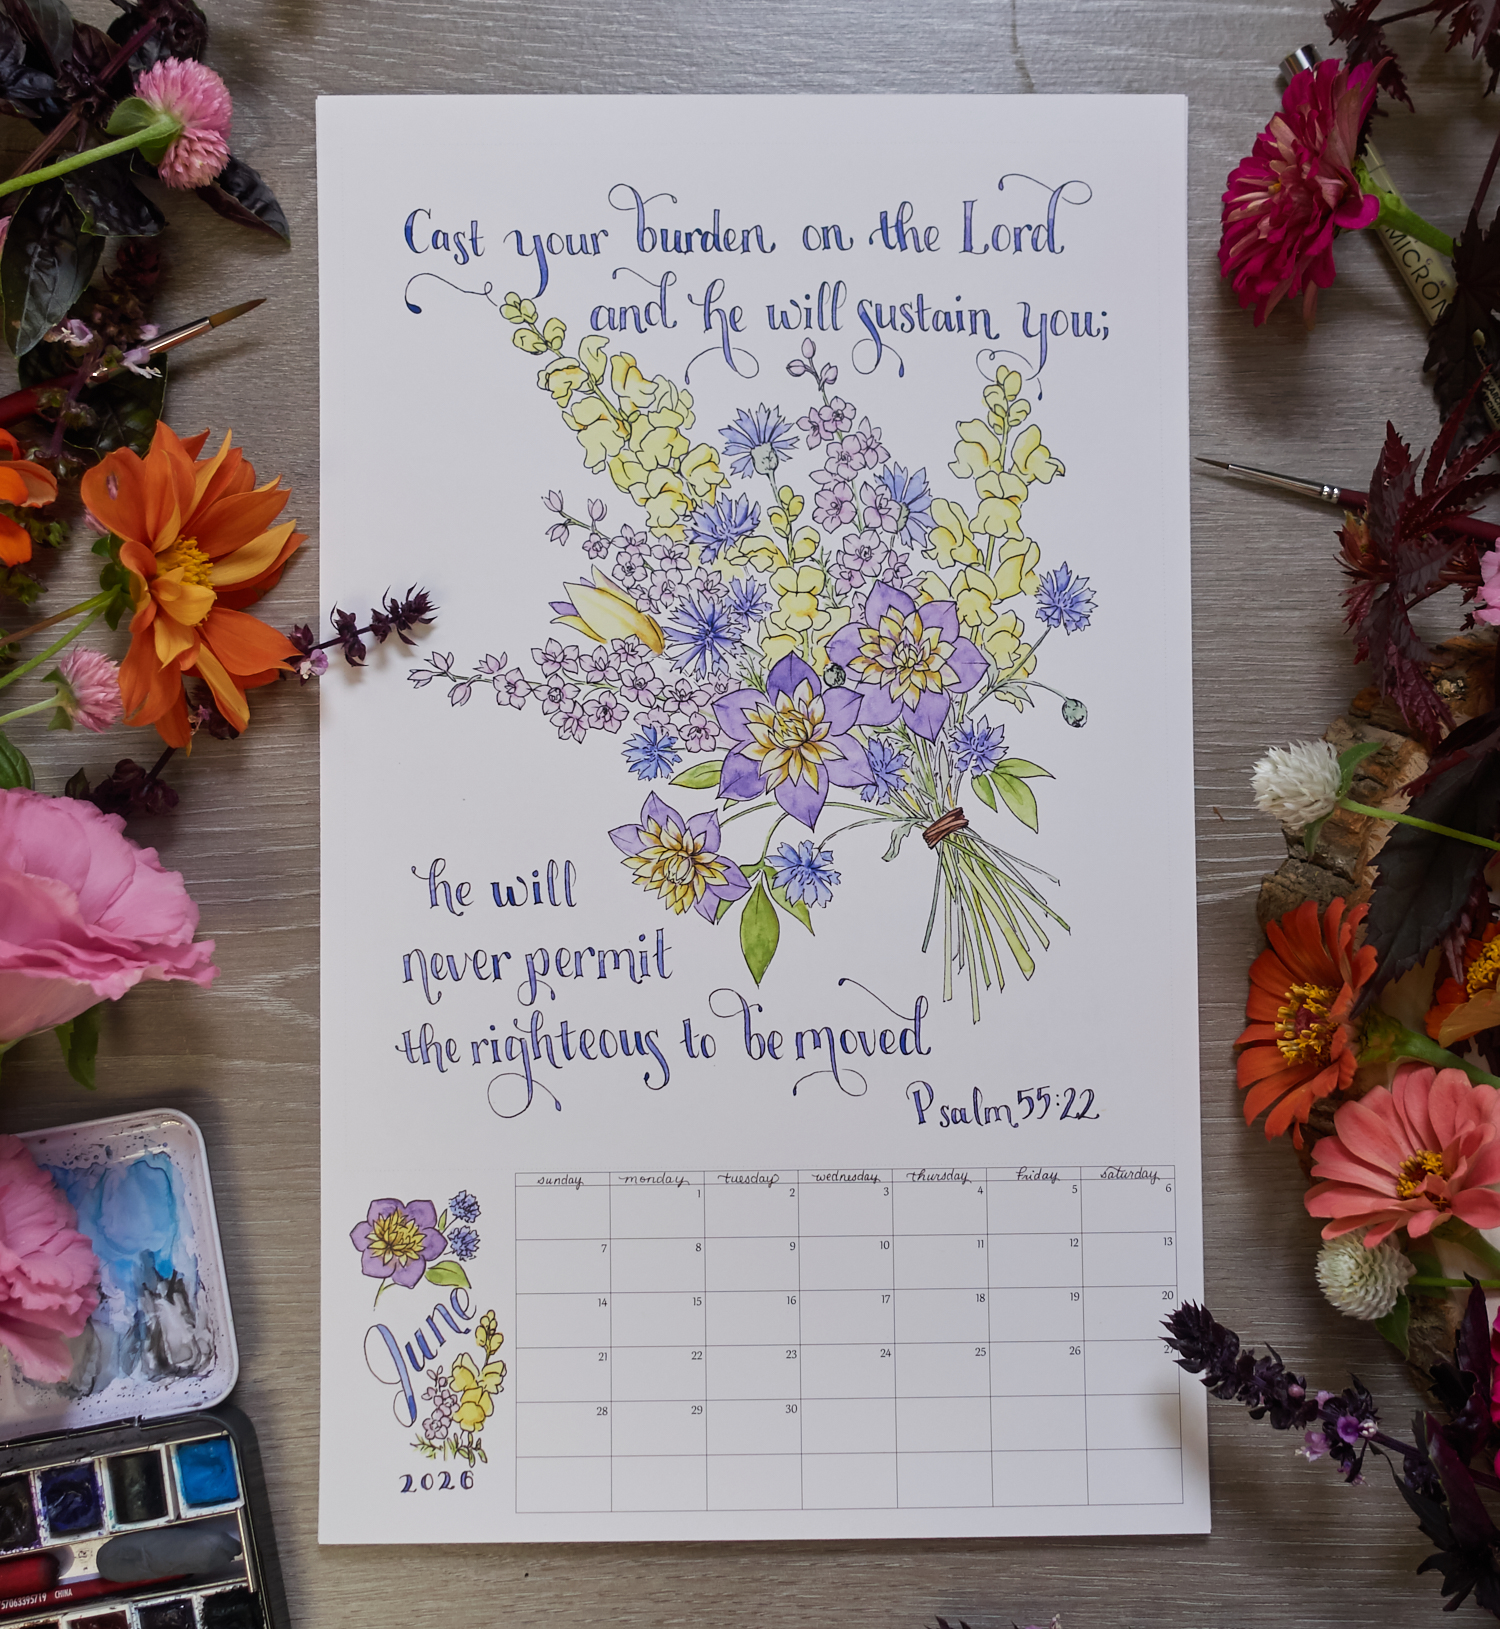 Cast your burden on the Lord
and he will sustain you;
he will
never permit
the righteous to be moved
Psalm 55:22
sunday monday tuesday wednesday thursday friday saturday
1 2 3 4 5 6
7 8 9 10 11 12 13
14 15 16 17 18 19 20
21 22 23 24 25 26 27
28 29 30
June
2026
MICRON
57063395719 CHINA